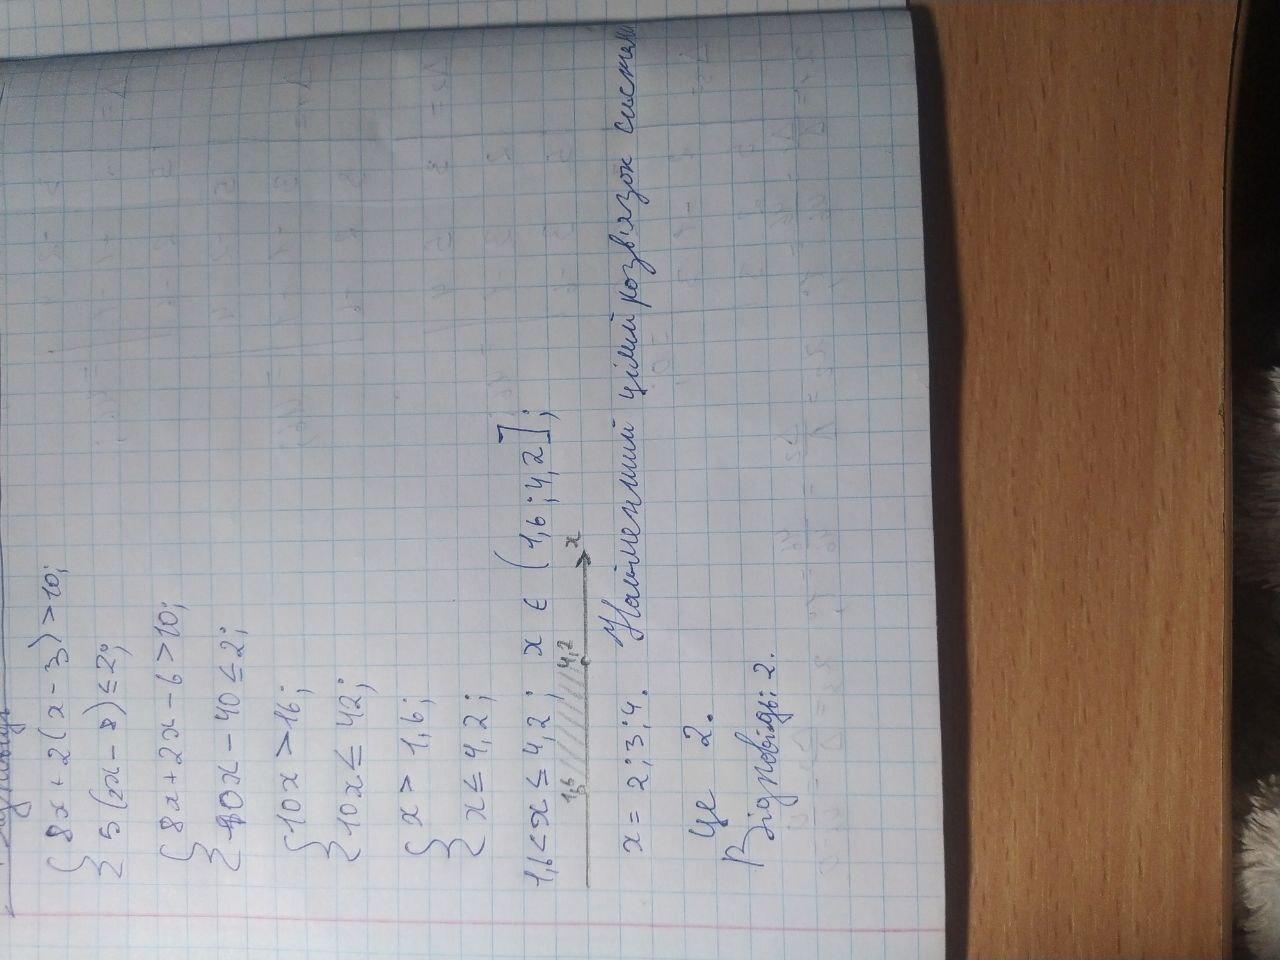 { 8x + 2(x - 3) > 10;
5(2x - 8) ≤ 2;
{ 8x + 2x - 6 > 10;
10x - 40 ≤ 2;
{ 10x > 16;
10x ≤ 42;
{ x > 1,6;
x ≤ 4,2;
1,6 < x ≤ 4,2; x ∈ (1,6; 4,2];
1,6 4,2 x
x = 2; 3; 4. Найменший цілий розв'язок системи
Це 2.
Відповідь: 2.